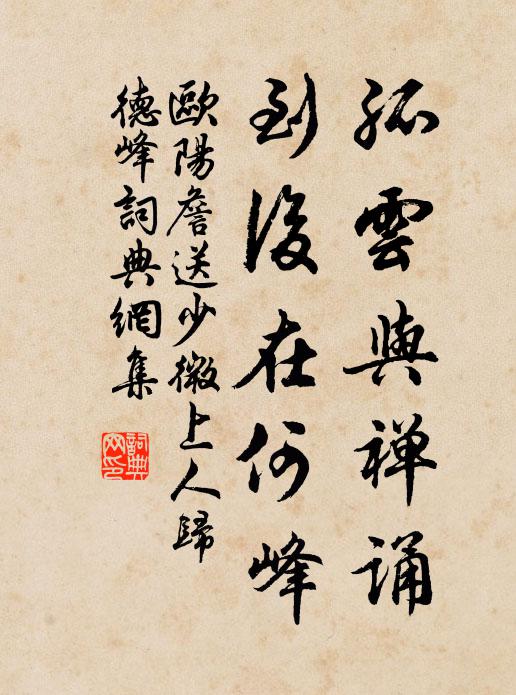 孤雲與禪誦
到後在何峰
歐陽詹送少微上人歸
德峰詞典網集
詞典網印